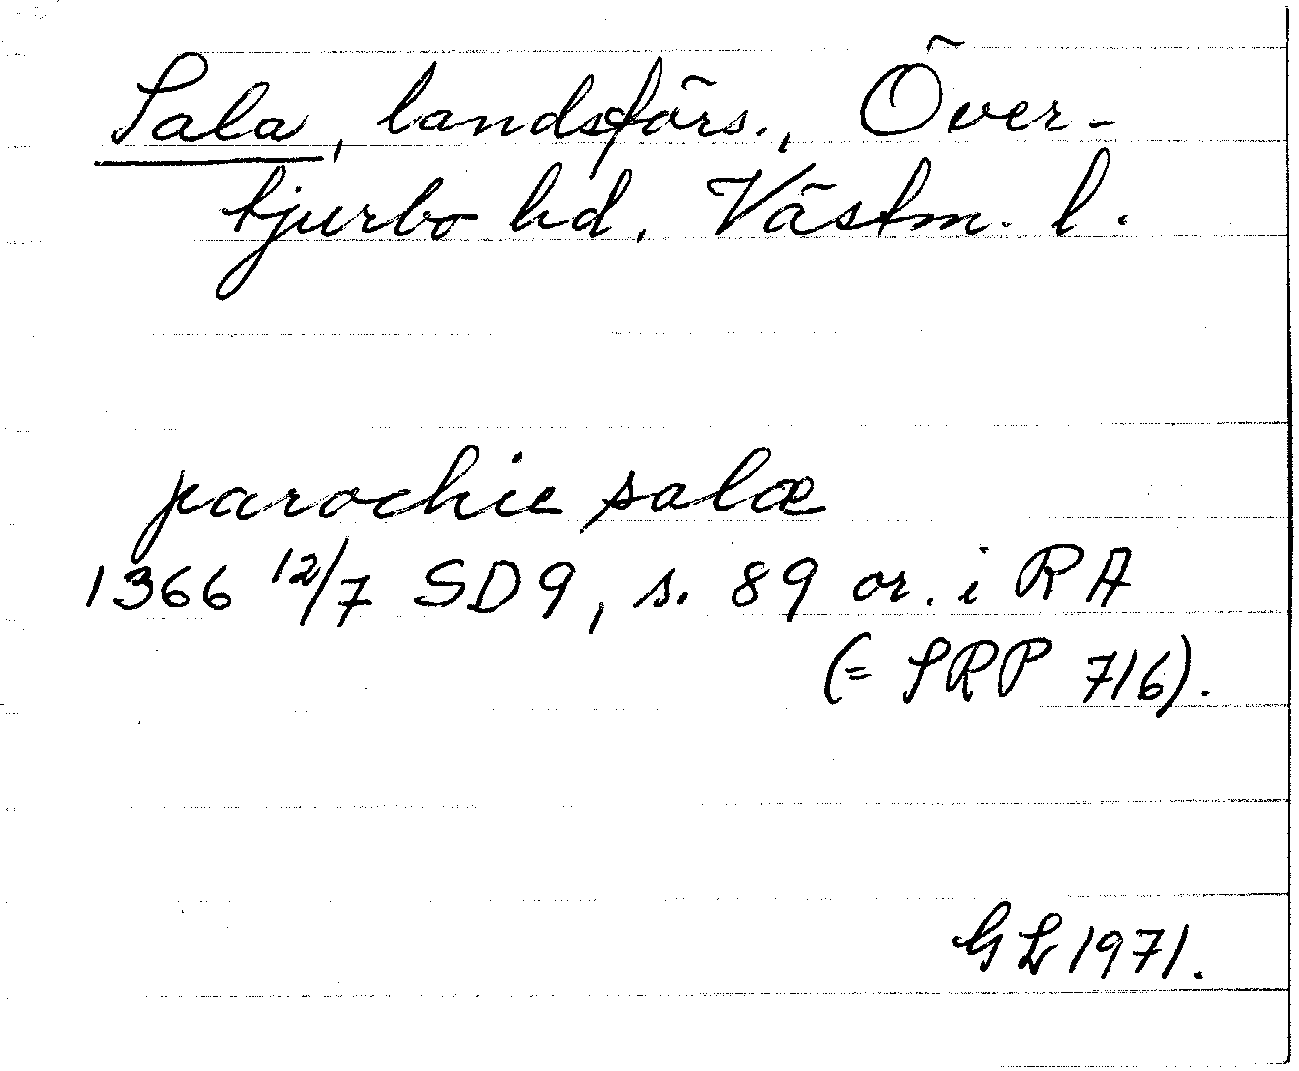 Sala, landsförs., Över-
tjurbo hd, Västm. l.
parochie salæ
1366 12/7 SD9, s. 89 or. i RA
(= SRP 716).
GL 1971.